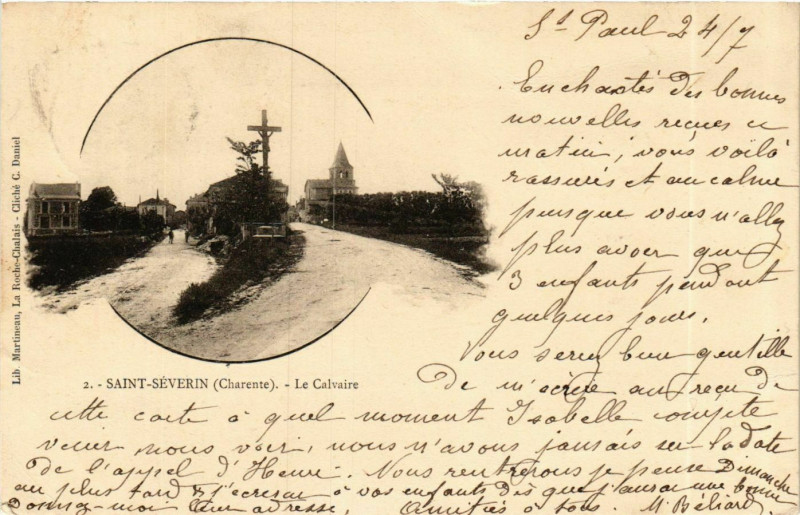 St Paul 24/7
Enchantés des bonnes
nouvelles reçues ce
matin, vous voilà
rassurés et au calme
puisque vous n'allez
plus avoir que
3 enfants pendant
quelques jours.
Vous serez bien gentille
De m'écrire au reçu de
cette carte à quel moment Isabelle compte
venir nous voir, nous n'avons jamais su la date
de l'appel d'Henri. Nous rentrerons je pense Dimanche
au plus tard & j'écrirai à vos enfants dès que j'aurai une bonne
Donnez-moi leur adresse, Amitiés à tous. M. Béliard
Lib. Martineau, La Roche-Chalais - Cliché C. Daniel
2. - SAINT-SÉVERIN (Charente). - Le Calvaire